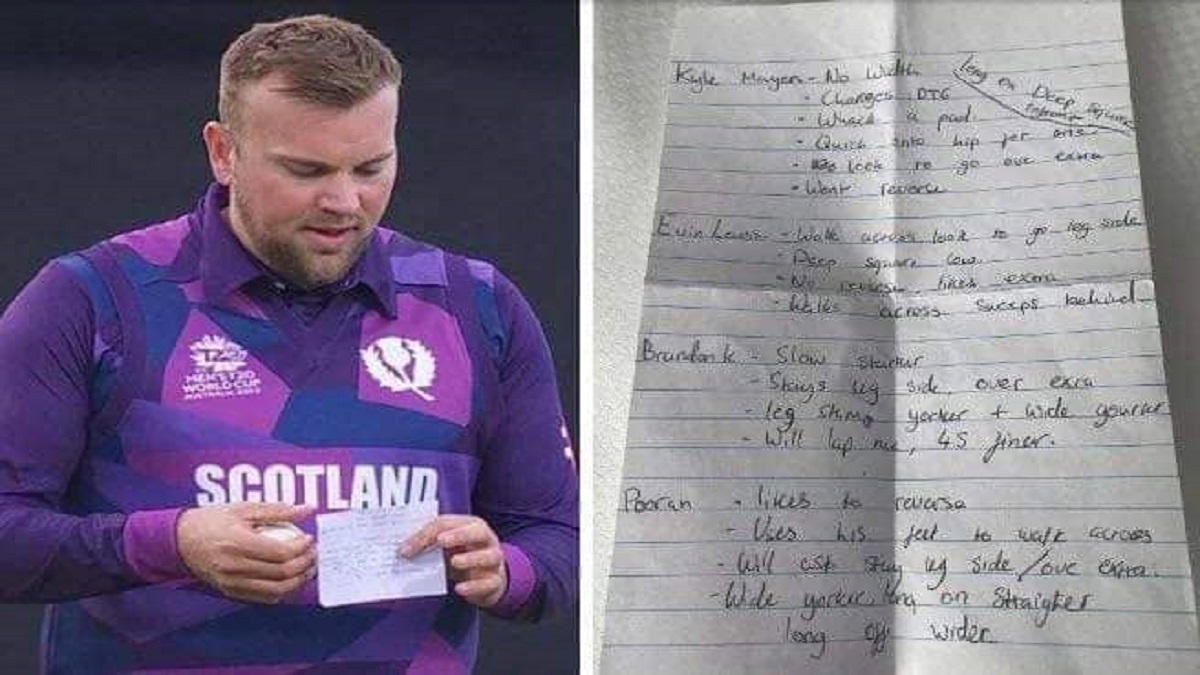 MEN'S T20
WORLD CUP
SCOTLAND
Kyle Mayers - No Width
long on Deep square
• Changes DTG
• Whack a pad.
• Quick into hip for
• look to go ove extra
• Wont reverse
Evin Lewis - Walk across look to go leg side
• Deep square
• No reverse likes extra
• Walks across sweeps behind
Brandon K - Slow starter
- Stays leg side over exra
- leg stump yorker + wide yourker
- Will lap me, 45 finer.
Pooran - likes to reverse
- Uses his feet to walk across
- Will stay leg side / ove extra.
- Wide yorker, long on Straighter
long off wider